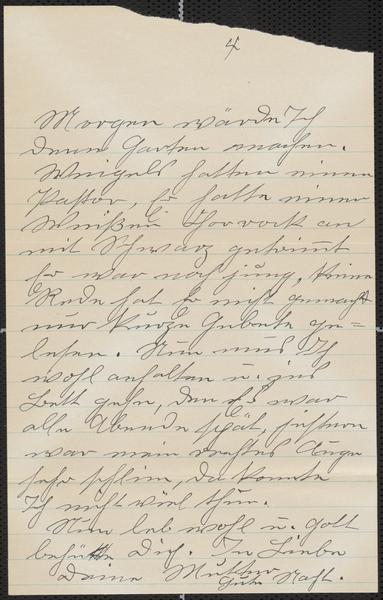 4
Morgen wärde Ich
denn Garten machen.
Weigels hatten einen
Pastor, Er hatte einen
Weißen Chorrock an
mit Schwarz getrimt
Er war noch jung, keine
Rede hat er nicht gemacht
nur kurze Gebete ge=
lesen. Nun mus Ich
wohl anhalten u. ins
Bett gehn, den es war
alle Abende spät, gestern
war mein rechtes Auge
sehr schlim, da konnte
Ich nicht viel thun.
Nun leb wohl u. Gott
behütte Dich. In Liebe
Deine Mutter
Gute Nacht.